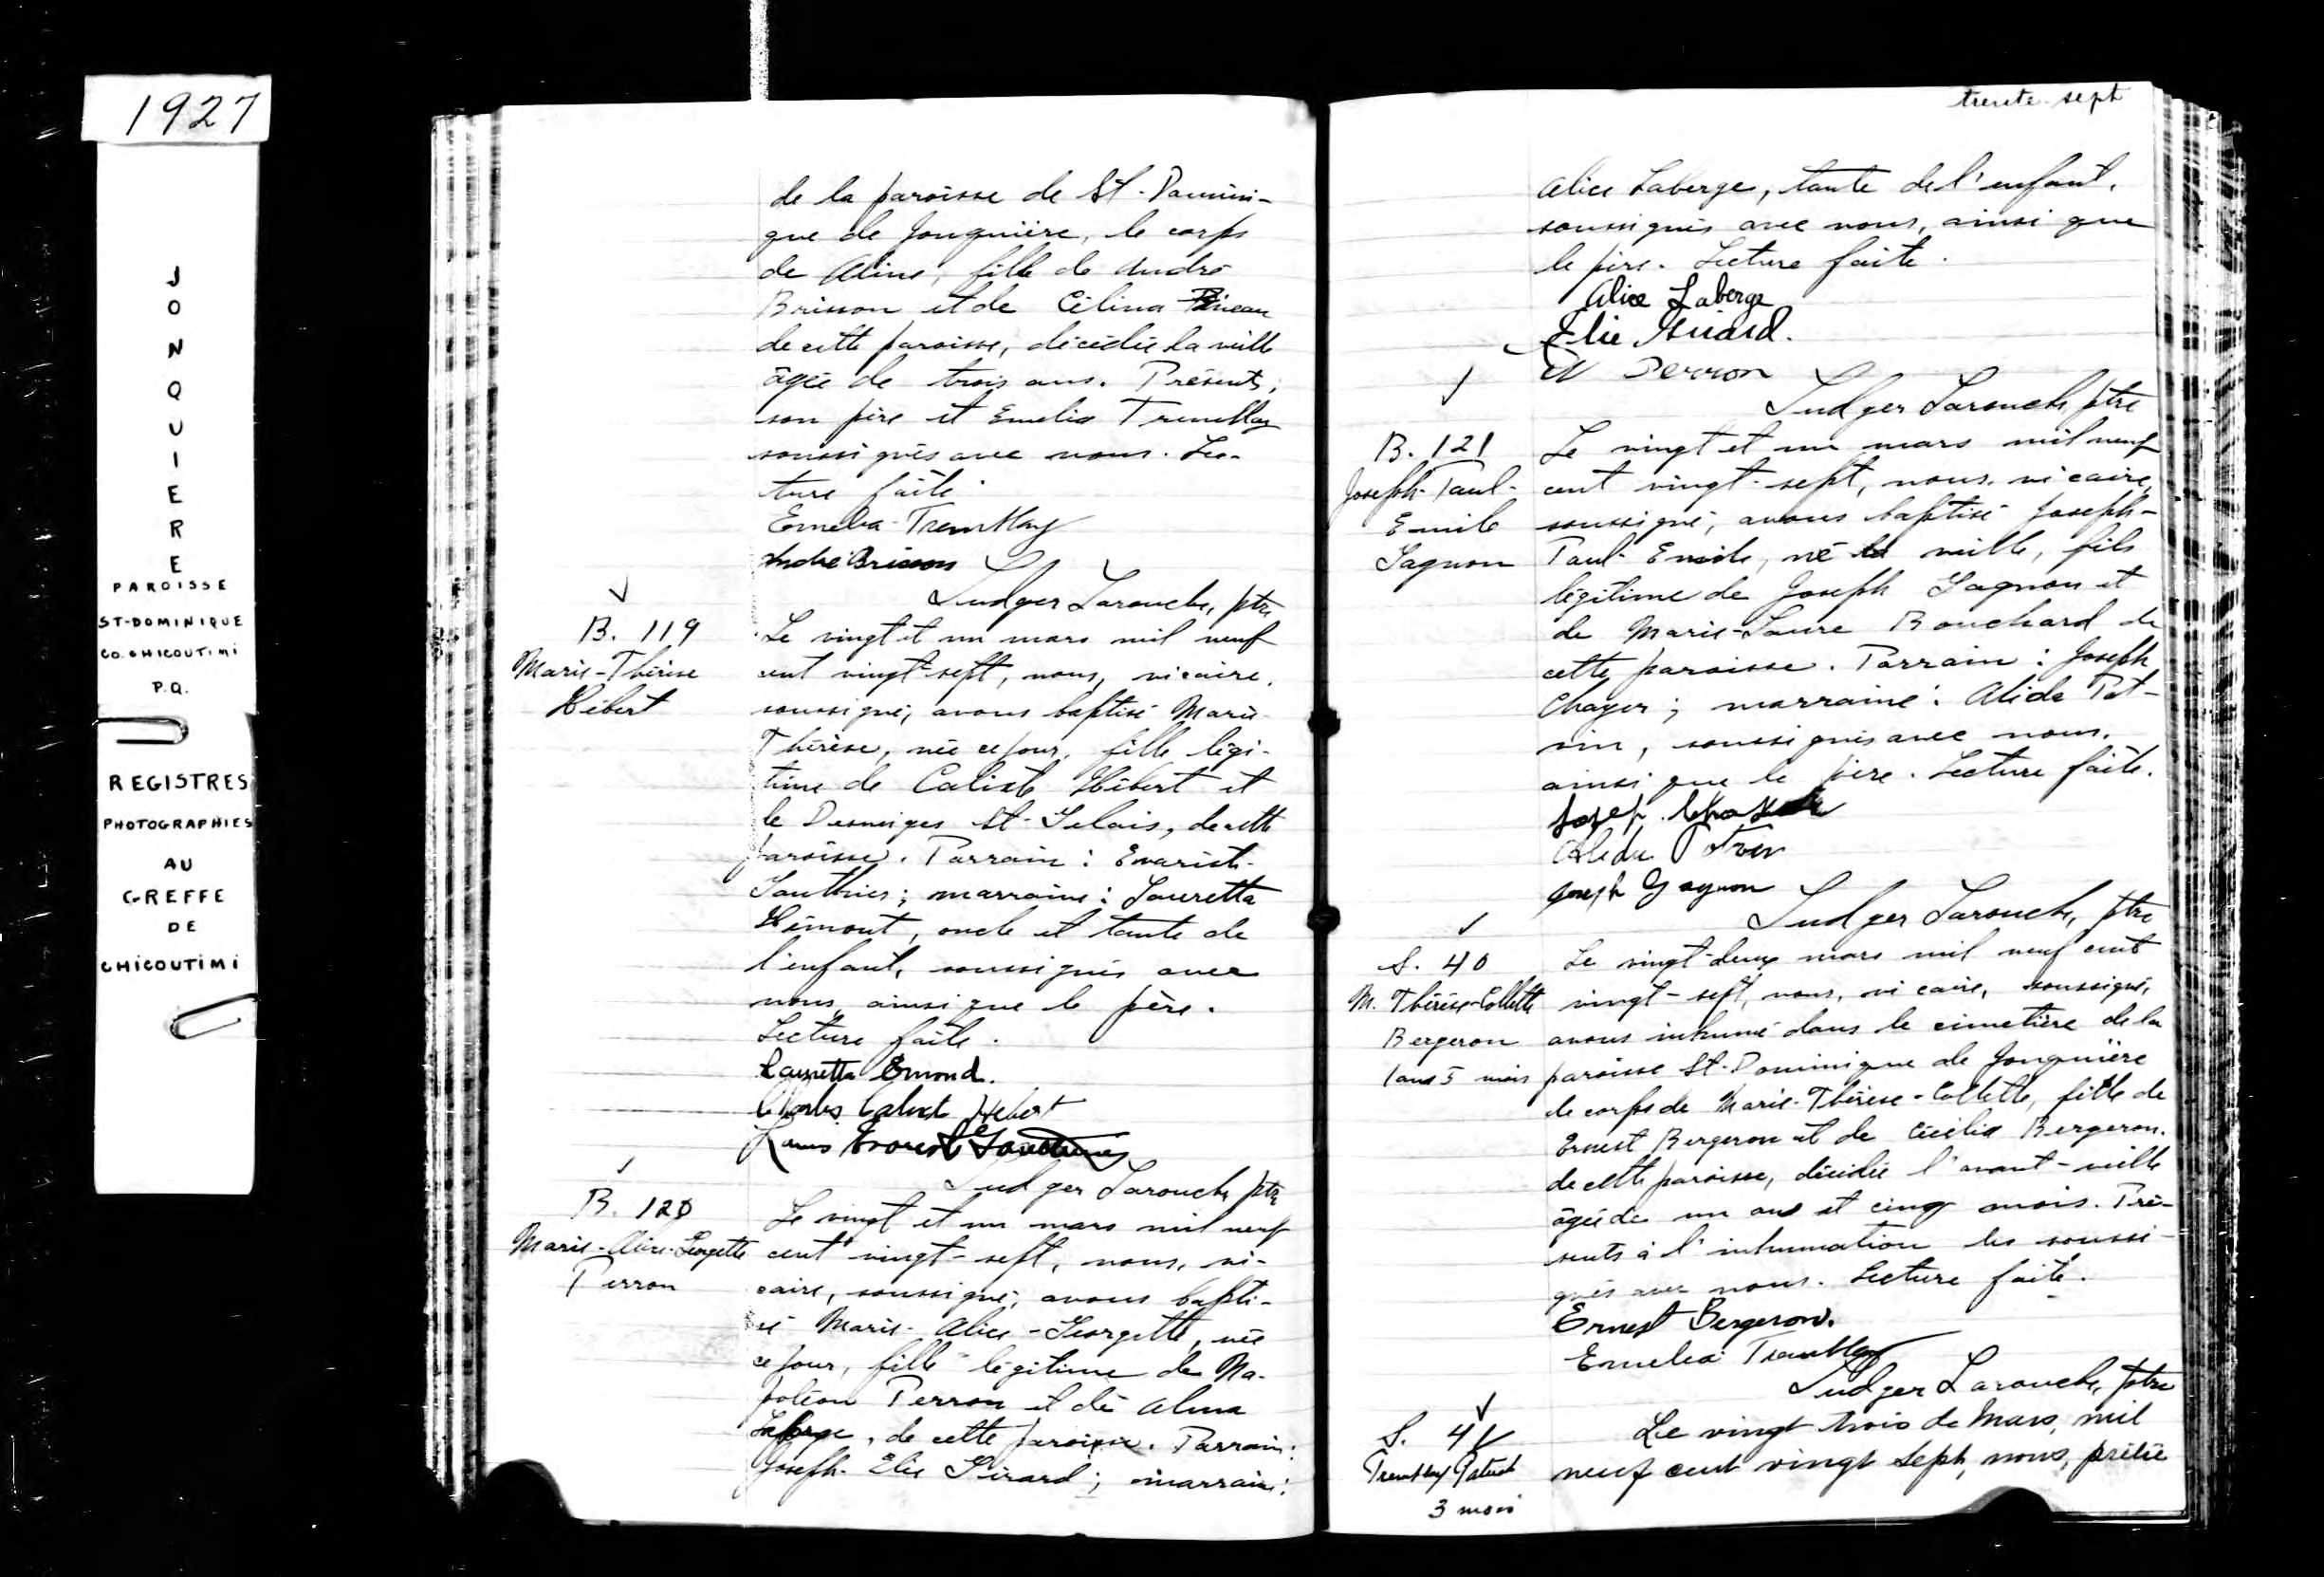 1927
JONQUIERE
PAROISSE
ST-DOMINIQUE
CO. CHICOUTIMI
P.Q.
REGISTRES
PHOTOGRAPHIES
AU
GREFFE
DE
CHICOUTIMI
de la paroisse de St-Domini-
que de Jonquière, le corps
de Aline, fille de André
Brisson et de Célina
de cette paroisse, décédée la veille
âgée de trois ans. Présents,
son père et Emelia Tremblay
soussignés avec nous. Lec-
ture faite.
Emelia Tremblay
André Brisson
Ludger Larouche, ptre
B. 119
Marie-Thérèse
Hébert
Le vingt et un mars mil neuf
cent vingt-sept, nous, vicaire,
soussigné, avons baptisé Marie-
Thérèse, née ce jour, fille légi-
time de Calixte Hébert et
de Desneiges St-Gelais, de cette
paroisse. Parrain : Evariste
Gauthier ; marraine : Lauretta
Hémont, oncle et tante de
l'enfant, soussignés avec
nous ainsi que le père.
Lecture faite.
Lauretta Emond.
Charles Calixt Hebert
Louis Evariste Gauthier
Ludger Larouche ptre
B. 120
Marie-Alice-Georgette
Perron
Le vingt et un mars mil neuf
cent vingt-sept, nous, vi-
caire, soussigné, avons bapti-
sé Marie-Alice-Georgette, née
ce jour, fille légitime de Na-
poléon Perron et de Alma
Laberge, de cette paroisse. Parrain :
Joseph-Elie Girard ; marraine :
trente-sept
Alice Laberge, tante de l'enfant,
soussignés avec nous, ainsi que
le père. Lecture faite.
Alice Laberge
Elie Girard.
N Perron
Ludger Larouche ptre
B. 121
Joseph-Paul-
Emile
Gagnon
Le vingt et un mars mil neuf
cent vingt-sept, nous, vicaire,
soussigné, avons baptisé Joseph-
Paul-Emile, né la veille, fils
légitime de Joseph Gagnon et
de Marie-Laure Bouchard de
cette paroisse. Parrain : Joseph
Chayer ; marraine : Alida Pot-
vin, soussignés avec nous,
ainsi que le père. Lecture faite.
Josep
Alida Potvin
Joseph Gagnon
Ludger Larouche, ptre
S. 40
M. Thérèse-Collette
Bergeron
1 ans 5 mois
Le vingt-deux mars mil neuf cent
vingt-sept, nous, vicaire, soussigné,
avons inhumé dans le cimetière de la
paroisse St-Dominique de Jonquière
le corps de Marie-Thérèse-Collette, fille de
Ernest Bergeron et de Cécilia Bergeron,
de cette paroisse, décédée l'avant-veille
âgée de un ans et cinq mois. Pré-
sents à l'inhumation les soussi-
gnés avec nous. Lecture faite.
Ernest Bergeron.
Emelia Tremblay
Ludger Larouche, ptre
S. 41
Tremblay Patrick
3 mois
Le vingt trois de Mars, mil
neuf cent vingt sept, nous, prêtre